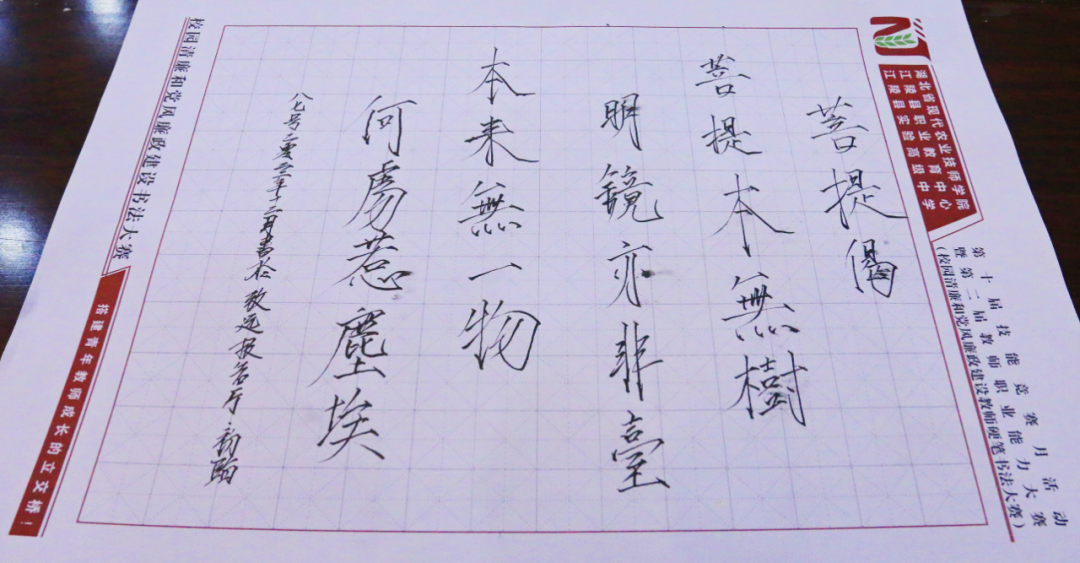 湖北省现代农业技师学院
江陵县职业教育中心
江陵县实验高级中学
第十届技能竞赛月活动
暨第二届教师职业能力大赛
(校园清廉和党风廉政建设教师硬笔书法大赛)
菩提偈
菩提本無樹
明鏡亦非臺
本来無一物
何處惹塵埃
校园清廉和党风廉政建设书法大赛
搭建青年教师成长的立交桥！